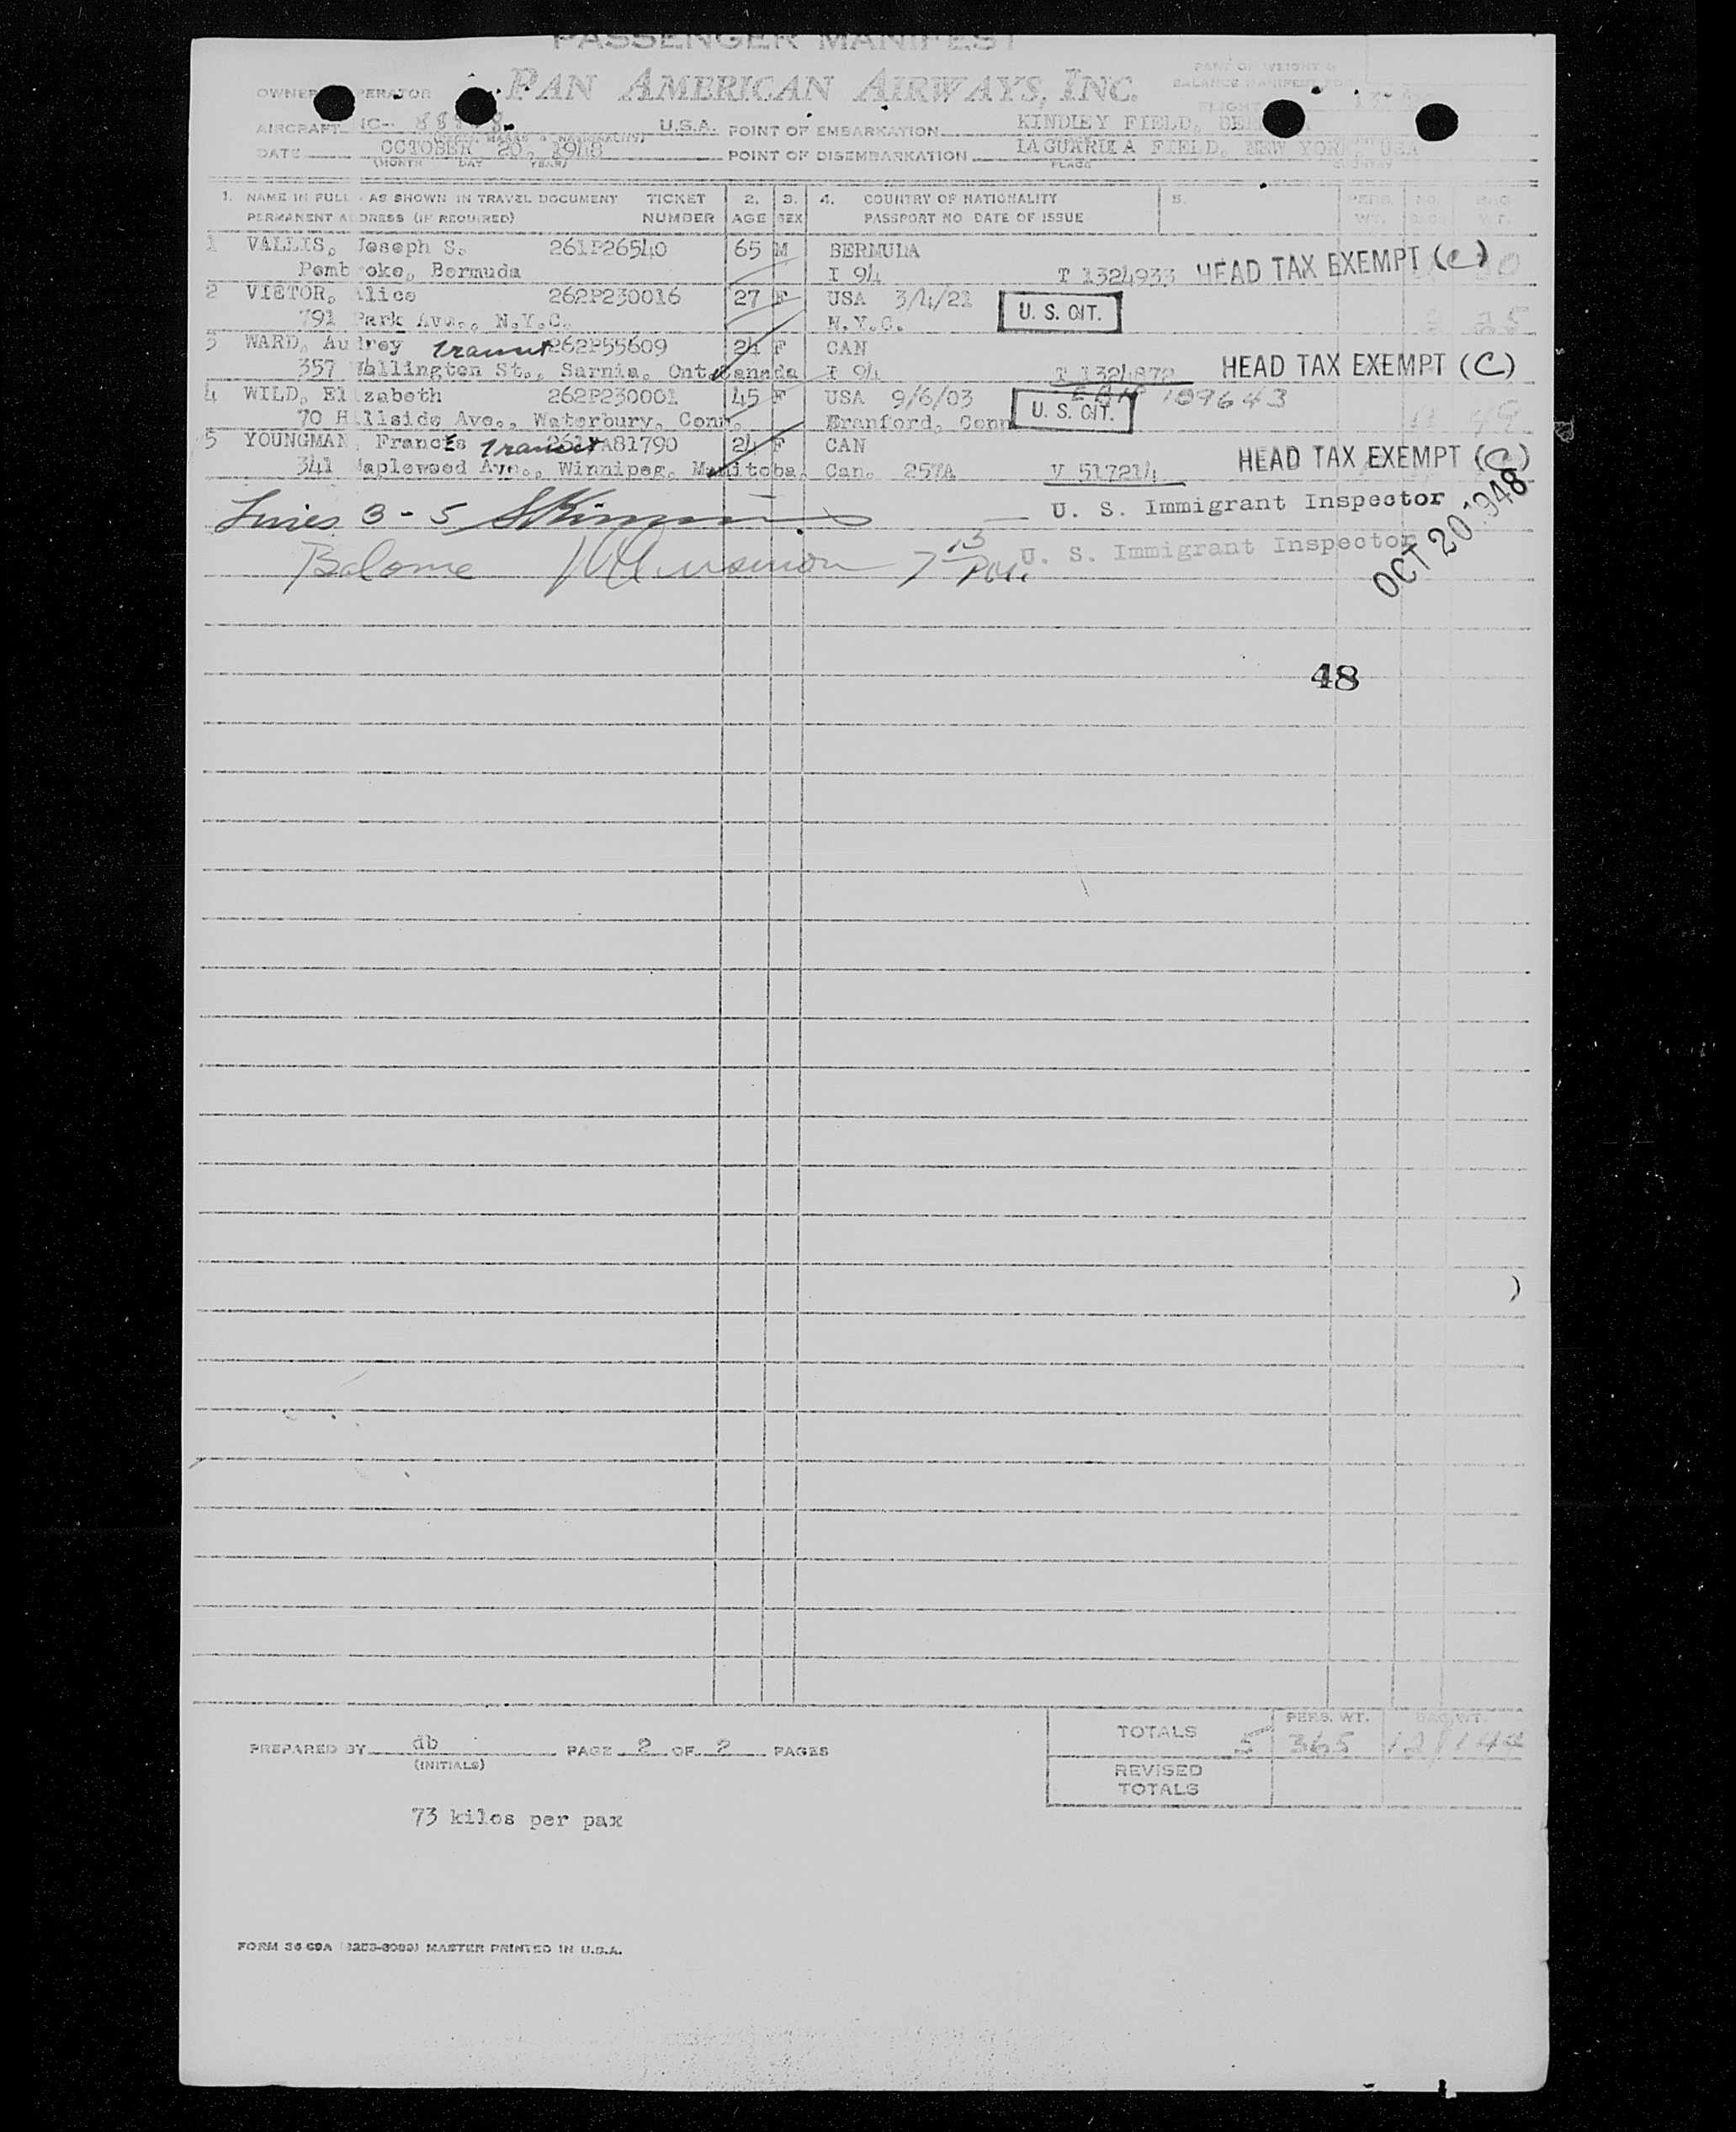 PASSENGER MANIFEST
PAN AMERICAN AIRWAYS, INC.
PART OF WEIGHT &
BALANCE MANIFEST FOR
FLIGHT
AIRCRAFT NC- U.S.A. POINT OF EMBARKATION KINDLEY FIELD,
DATE OCTOBER 20, 1948 POINT OF DISEMBARKATION LAGUARDIA FIELD, NEW YORK USA
(MONTH DAY YEAR) PLACE COUNTRY
1. NAME IN FULL - AS SHOWN IN TRAVEL DOCUMENT TICKET 2. 3. 4. COUNTRY OF NATIONALITY 5. PERS. NO. BAG
PERMANENT ADDRESS (IF REQUIRED) NUMBER AGE SEX PASSPORT NO DATE OF ISSUE WT. WT.
1 VALLIS, Joseph S. 261P26540 65 M BERMUDA
Pembroke, Bermuda I 94 T 1324933 HEAD TAX EXEMPT (C)
2 VIETOR, Alice 262P230016 27 F USA 3/4/21 U. S. CIT.
791 Park Ave., N.Y.C. N.Y.C.
3 WARD, Audrey transit 262P55609 24 F CAN
357 Wellington St., Sarnia, Ont. Canada I 94 T 1324872 HEAD TAX EXEMPT (C)
4 WILD, Elizabeth 262P230001 45 F USA 9/6/03 109643
70 Hillside Ave., Waterbury, Conn. Branford, Conn U. S. CIT.
5 YOUNGMAN, Francis transit A81790 24 F CAN
341 Maplewood Ave., Winnipeg, Manitoba, Can. 257A V 517214 HEAD TAX EXEMPT (C)
Lines 3 - 5 U. S. Immigrant Inspector
U. S. Immigrant Inspector
OCT 20 1948
48
TOTALS 5 PERS. WT. 365 BAG. WT.
PREPARED BY db PAGE 2 OF 2 PAGES
(INITIALS)
REVISED
TOTALS
73 kilos per pax
FORM 36-69A MASTER PRINTED IN U.S.A.